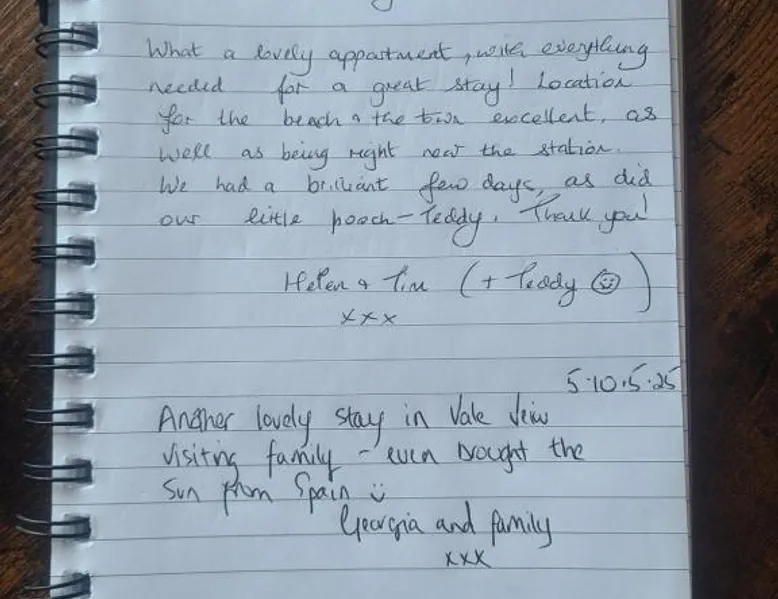 What a lovely appartment, with everything
needed for a great stay! Location
for the beach & the town excellent, as
well as being right near the station.
We had a brilliant few days, as did
our little pooch - Teddy. Thank you!
Helen & Tim (+ Teddy ☺)
xxx
5-10.5.25
Another lovely stay in Vale View
visiting family - even brought the
Sun from Spain ☺
Georgia and family
xxx